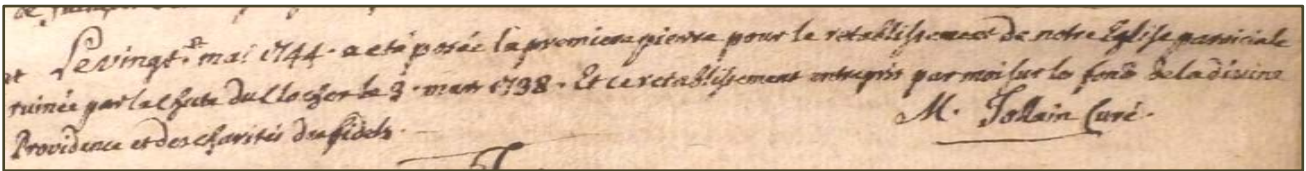 Le vingt.e mai 1744. a eté posée la premiere pierre pour le retablissement de notre Eglise paroiciale
ruinée par la chute du Clocher le 3. mars 1738. Et ce retablissement entrepris par moi sur les fons de la divine
Providence et des charités des fidels.
M. Jollain Curé.